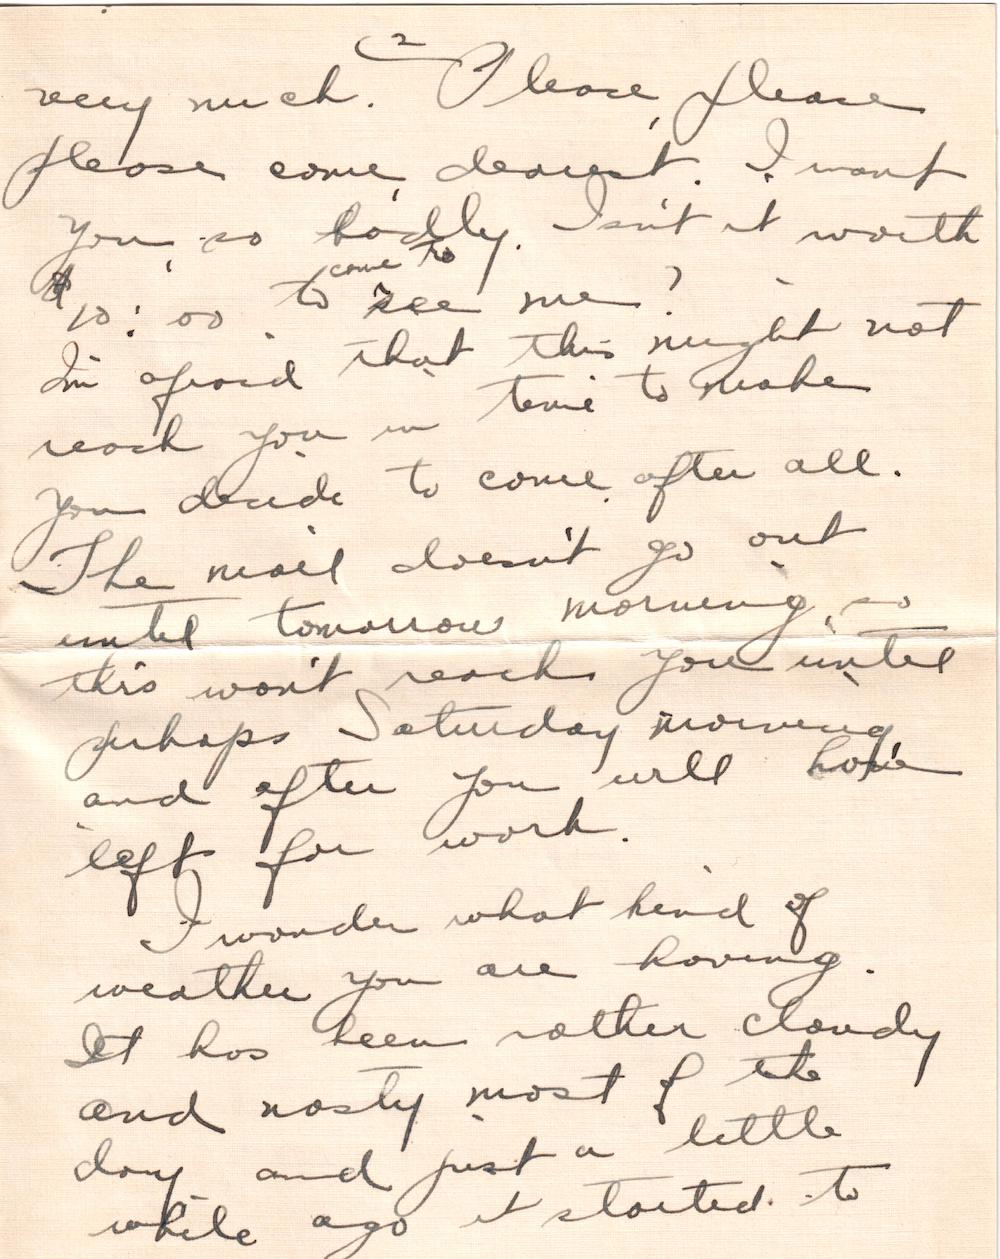 2
very much. Please, please
please come, dearest. I want
you so badly. Isn't it worth
$10.00 to come to see me?
I'm afraid that this might not
reach you in time to make
you decide to come after all.
The mail doesn't go out
until tomorrow morning, so
this won't reach you until
perhaps Saturday morning
and after you will have
left for work.
I wonder what kind of
weather you are having.
It has been rather cloudy
and nasty most of the
day and just a little
while ago it started to